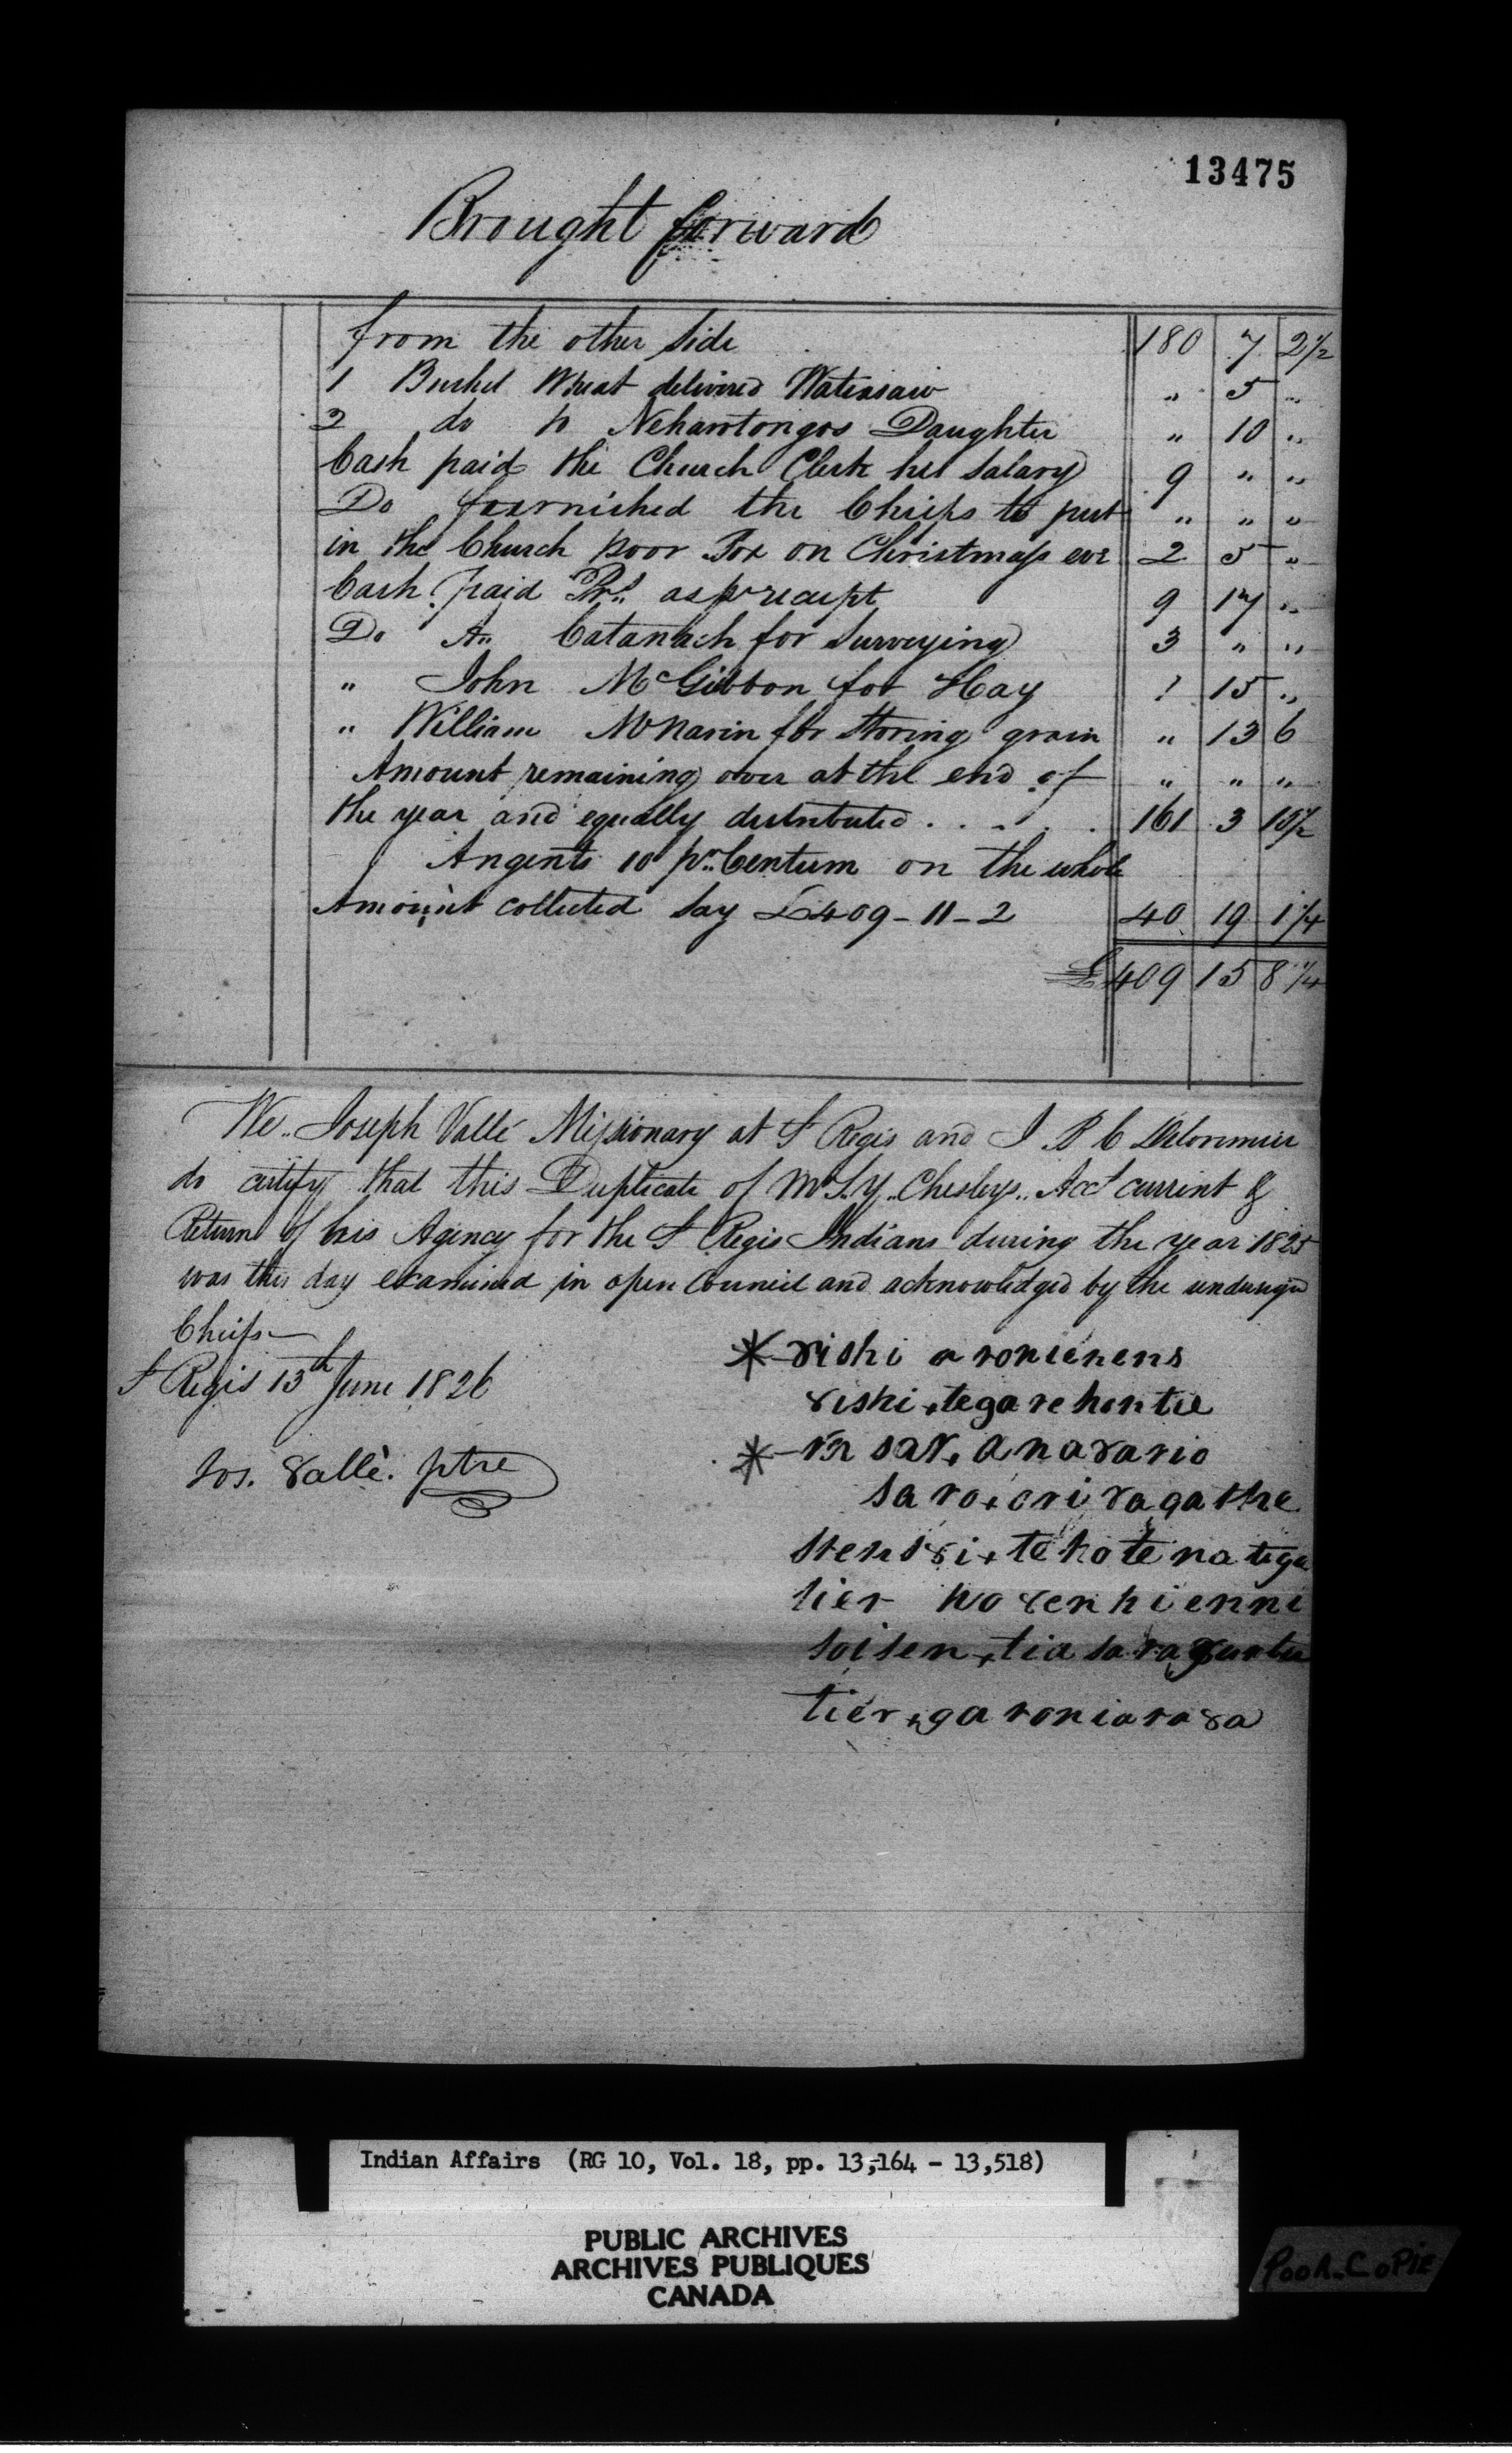 13475
Brought forward
from the other Side 180 7 2½
1 Bushel Wheat delivered Watensaw " 5 "
2 do to Nehawtongos Daughter " 10 "
Cash paid the Church Clerk his Salary 9 " "
Do furnished the Chiefs to put " " "
in the Church poor Box on Christmass eve 2 5 "
Cash paid as pr receipt 9 17 "
Do A" Catanach for Surveying 3 " "
" John McGibbon for Hay 1 15 "
" William for Storing grain " 13 6
Amount remaining over at the end of " " "
the year and equally distributed . . . . . 161 3 10½
Angents 10 pr Centum on the whole
Amount collected Say £409-11-2 40 19 1¼
£ 409 15 8¼
We.. Joseph Vallé Missionary at St Regis and J B C Delorimier
do certify that this Duplicate of Mr S.Y. Chesleys.. Acct currint &
Return of his Agency for the St Regis Indians during the year 1825
was this day examined in open Council and acknowledged by the
Chiefs
St Regis 13th June 1826
Jos. Ȣallè. ptre
* Ȣishi aronienens
Ȣishi + tegarehontie
* saȢ, anaȢario
saro + ori Ȣagathe
stensȢi + tehotenatega
tier hoȢenhienni
soisen +
tier + garoniaraȢa
Indian Affairs (RG 10, Vol. 18, pp. 13,164 - 13,518)
PUBLIC ARCHIVES
ARCHIVES PUBLIQUES
CANADA
POOR COPIE